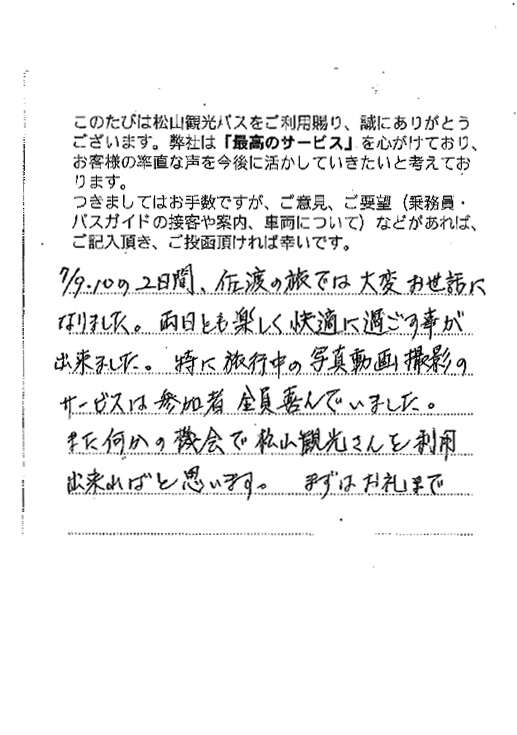 このたびは松山観光バスをご利用賜り、誠にありがとう
ございます。弊社は「最高のサービス」を心がけており、
お客様の率直な声を今後に活かしていきたいと考えてお
ります。
つきましてはお手数ですが、ご意見、ご要望（乗務員・
バスガイドの接客や案内、車両について）などがあれば、
ご記入頂き、ご投函頂ければ幸いです。
7/9.10の2日間、佐渡の旅では大変お世話に
なりました。両日とも楽しく快適に過ごす事が
出来ました。特に旅行中の写真動画撮影の
サービスは参加者全員喜んでいました。
また何かの機会で松山観光さんを利用
出来ればと思います。まずはお礼まで